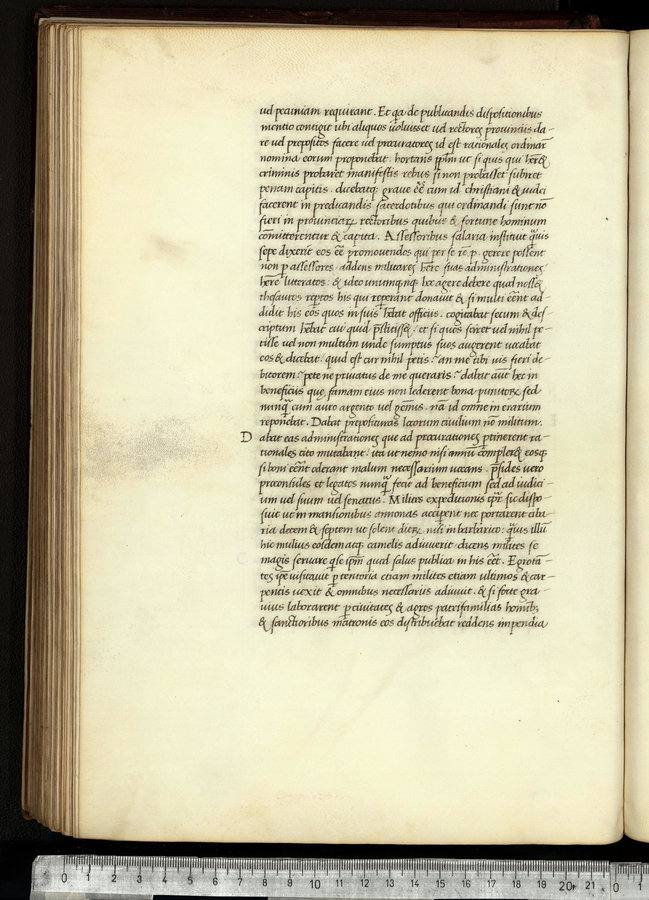 uel pecuniam requirant. Et qa de publicandis dispositionibus
mentio contigit ubi aliquos uoluisset uel rectores prouinciis da-
re uel prepositos facere uel procuratores id est rationales ordinar
nomina eorum proponebat. hortans pplm ut si quis qui herȩ
criminis probaret manifestis rebus si non probasset subiret
penam capitis. dicebatqȝ graue eē cum id christiani & iudei
facerent in predicandis sacerdotibus qui ordinandi sunt nō
fieri in prouinciarꝝ rectoribus quibus & fortune hominum
cōmitterentur & capita. Assessoribus salaria instituit q̄uis
sepe dixerit eos eē promouendos qui per se re p. gerere possent
non p assessores. addens militares hērē suas administrationes
hērē litteratos. & ideo unumqnqȝ hoc agere debere quod nosset
thesauros reptos his qui repererant donauit & si multi eēnt ad-
didit his eos quos in suis hēbat officiis. cogitabat secum & des-
criptum hēbat cui quid p̄stitisset. et si quos sciret uel nihil pe-
tisse uel non multum unde sumptus suos augerent uocabat
eos & dicebat. quid est cur nihil petis? an me tibi uis fieri de-
bitorem? pete ne priuatus de me queraris. dabat aūt hec in
beneficiis quȩ famam eius non lederent bona punitorꝝ sed
nunq̄ cum auro argento uel gēmis. nā id omne in erarium
reponebat. Dabat preposituras locorum ciuilium nō militum.
Dabat eas administrationes que ad procurationes ptinerent ra-
tionales cito mutabant. ita ut nemo nisi annū compleret eosqȝ
si boni eēnt oderant malum necessarium uocans. p̄sides uero
proconsules et legatos nunq̄ fecit ad beneficium sed ad iudici-
um uel suum uel senatus. Milites expeditionis tpr̄ sic dispo-
suit ut in mansionibus annonas acciperent nec portarent ciba-
ria decem & septem ut solent dierꝝ nisi in barbarico. q̄uis illic
hic mulius eosdem atqȝ camelis adiuuerit. dicens milites se
magis seruare q̄ se ipm̄ quod salus publica in his eēt. Egrotā-
tes ipe uisitauit p tentoria etiam milites etiam ultimos & car-
pentis uexit & omnibus necessariis adiuuit. & si forte gra-
uius laborarent p ciuitates & agros patrifamilias honestibȝ
& sanctioribus matronis eos distribuebat reddens impendia